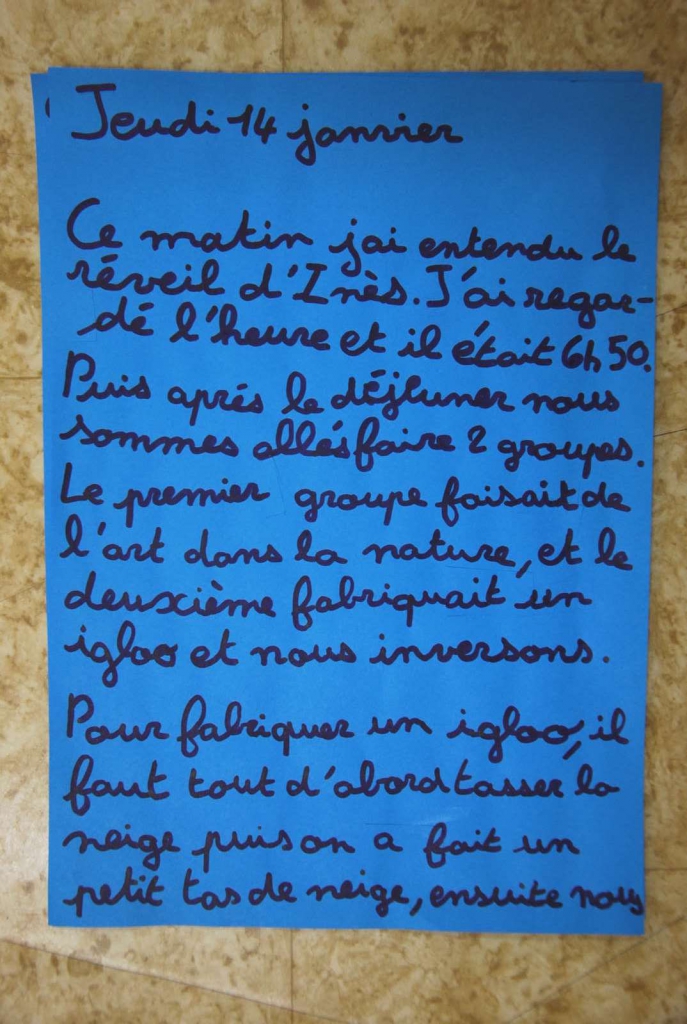 Jeudi 14 janvier
Ce matin jai entendu le
réveil d'Inès. J'ai regar-
dé l'heure et il était 6h50.
Puis aprés le déjeuner nous
sommes allés faire 2 groupes.
Le premier groupe faisait de
l'art dans la nature, et le
deuxième fabriquait un
igloo et nous inversons.
Pour fabriquer un igloo, il
faut tout d'abord tasser la
neige puis on a fait un
petit tas de neige, ensuite nous